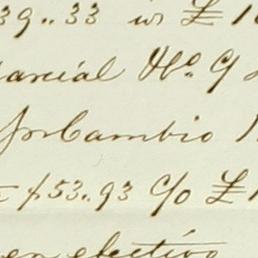 39..33 is £ 1
arcial No. 9
por Cambio
$53..93 c/o £
en efectivo